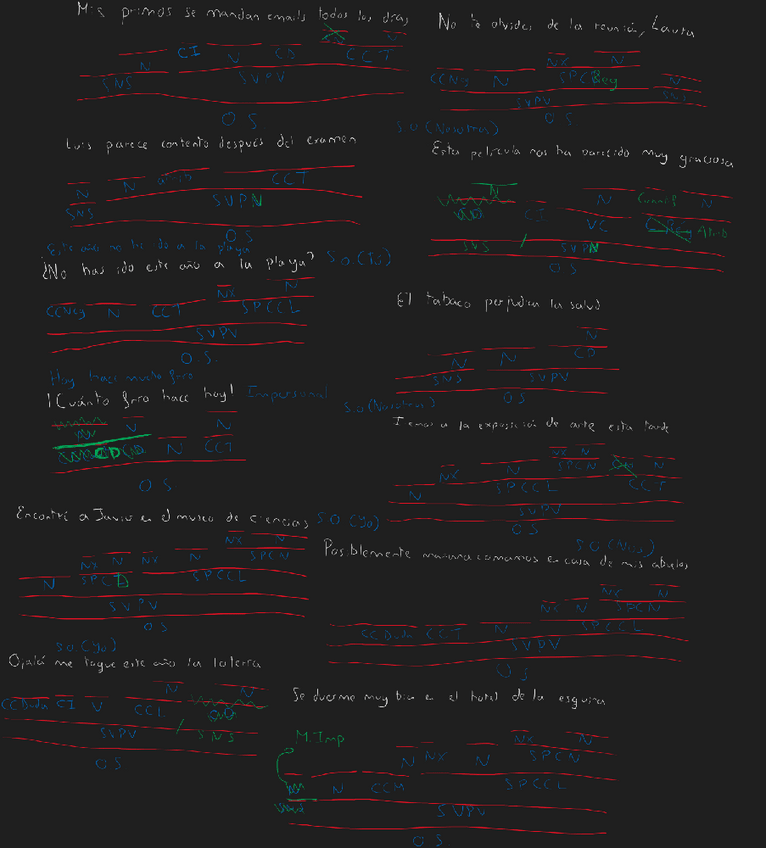 Mis primos se mandan emails todos los días
V
CI V CD CCT
N
SNS SVPV
OS
No te olvides de la reunión, Laura
NX N
CCNeg N SPCReg N
SVPV
OS
Luis parece contento después del examen
N N atrib CCT
SNS SVPN
OS
S.O.(Nosotros)
Esta película nos ha parecido muy graciosa
N N Cuantif N
CI VC Atrib
SNS / SVPN
OS
Este año no has ido a la playa
¿No has ido este año a la playa? S.O.(Tú)
NX N
CCNeg N CCT SPCCL
SVPV
O.S.
El tabaco perjudica la salud
N
N N CD
SNS SVPV
OS
Hoy hace mucho frío
¡Cuánto frío hace hoy! Impersonal
V N
CD N CCT
OS
S.O(Nosotros)
Iremos a la exposición de arte esta tarde
NX N
NX N SPCN N
N SPCCL CCT
SVPV
OS
Encontré a Javier en el museo de ciencias S.O(Yo)
NX N
NX N NX N SPCN
N SPCD SPCCL
SVPV
OS
S.O(Nos)
Posiblemente mañana comamos en casa de mis abuelos
NX N
NX N SPCN
CCDuda CCT N SPCCL
SVPV
OS
S.O.(Yo)
Ojalá me toque este año la lotería
N N
CCDuda CI V CCT
SVPV / SNS
OS
Se duerme muy bien en el hotel de la esquina
M.Imp
NX N
N NX N SPCN
N CCM SPCCL
SVPV
OS